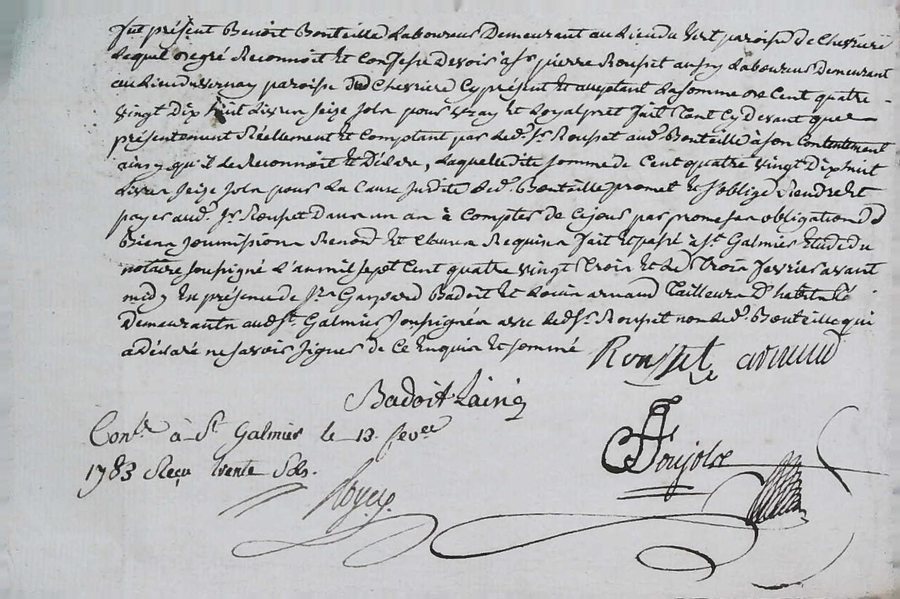 fut présent Benoit Bouteille Laboureur Demeurant au Lieu du vert paroisse de Chevrière
Lequel degré Reconnoit Et Confesse Devoir à Sr pierre Rousset aussy Laboureur Demeurant
au Lieu du vernay paroisse dud Chevriere Cy présent Et aceptant La somme de Cent quatre
vingt Dix huit Livres seize sols pour vray Et Loyal pret fait tant Cy Devant que
présentement Réellement Et Comptant par Led. Sr Rousset aud. Bouteille à son Contentement
ainsy qu'il Le Reconnoit Et Déclare, Laquelle dite somme de Cent quatre vingt Dix huit
Livres seize sols pour La Cause Judite Led. Bouteille promet Et s'oblige Rendre Et
payer aud. Sr Rousset Dans un an à Compter de Ce jour par promesses obligation D
Biens soumissions Renond. Et Clauses Requises fait Et passé à St. Galmier Etude du
notaire soussigné L'an mil sept Cent quatre vingt trois Et Le trois fevrier avant
midy En présence de Srs Gaspard Badoit Et Louis arnaud Tailleurs D'habits
Demeurants aud. St. Galmier soussignés avec Led. Sr. Rousset non Led. Bouteille qui
a déclaré ne savoir signer de Ce Enquis Et sommé Rousset arnaud
Badoit Lainé
Conlé à St Galmier le 13 fevrr
1783 Reçu trente Sols.